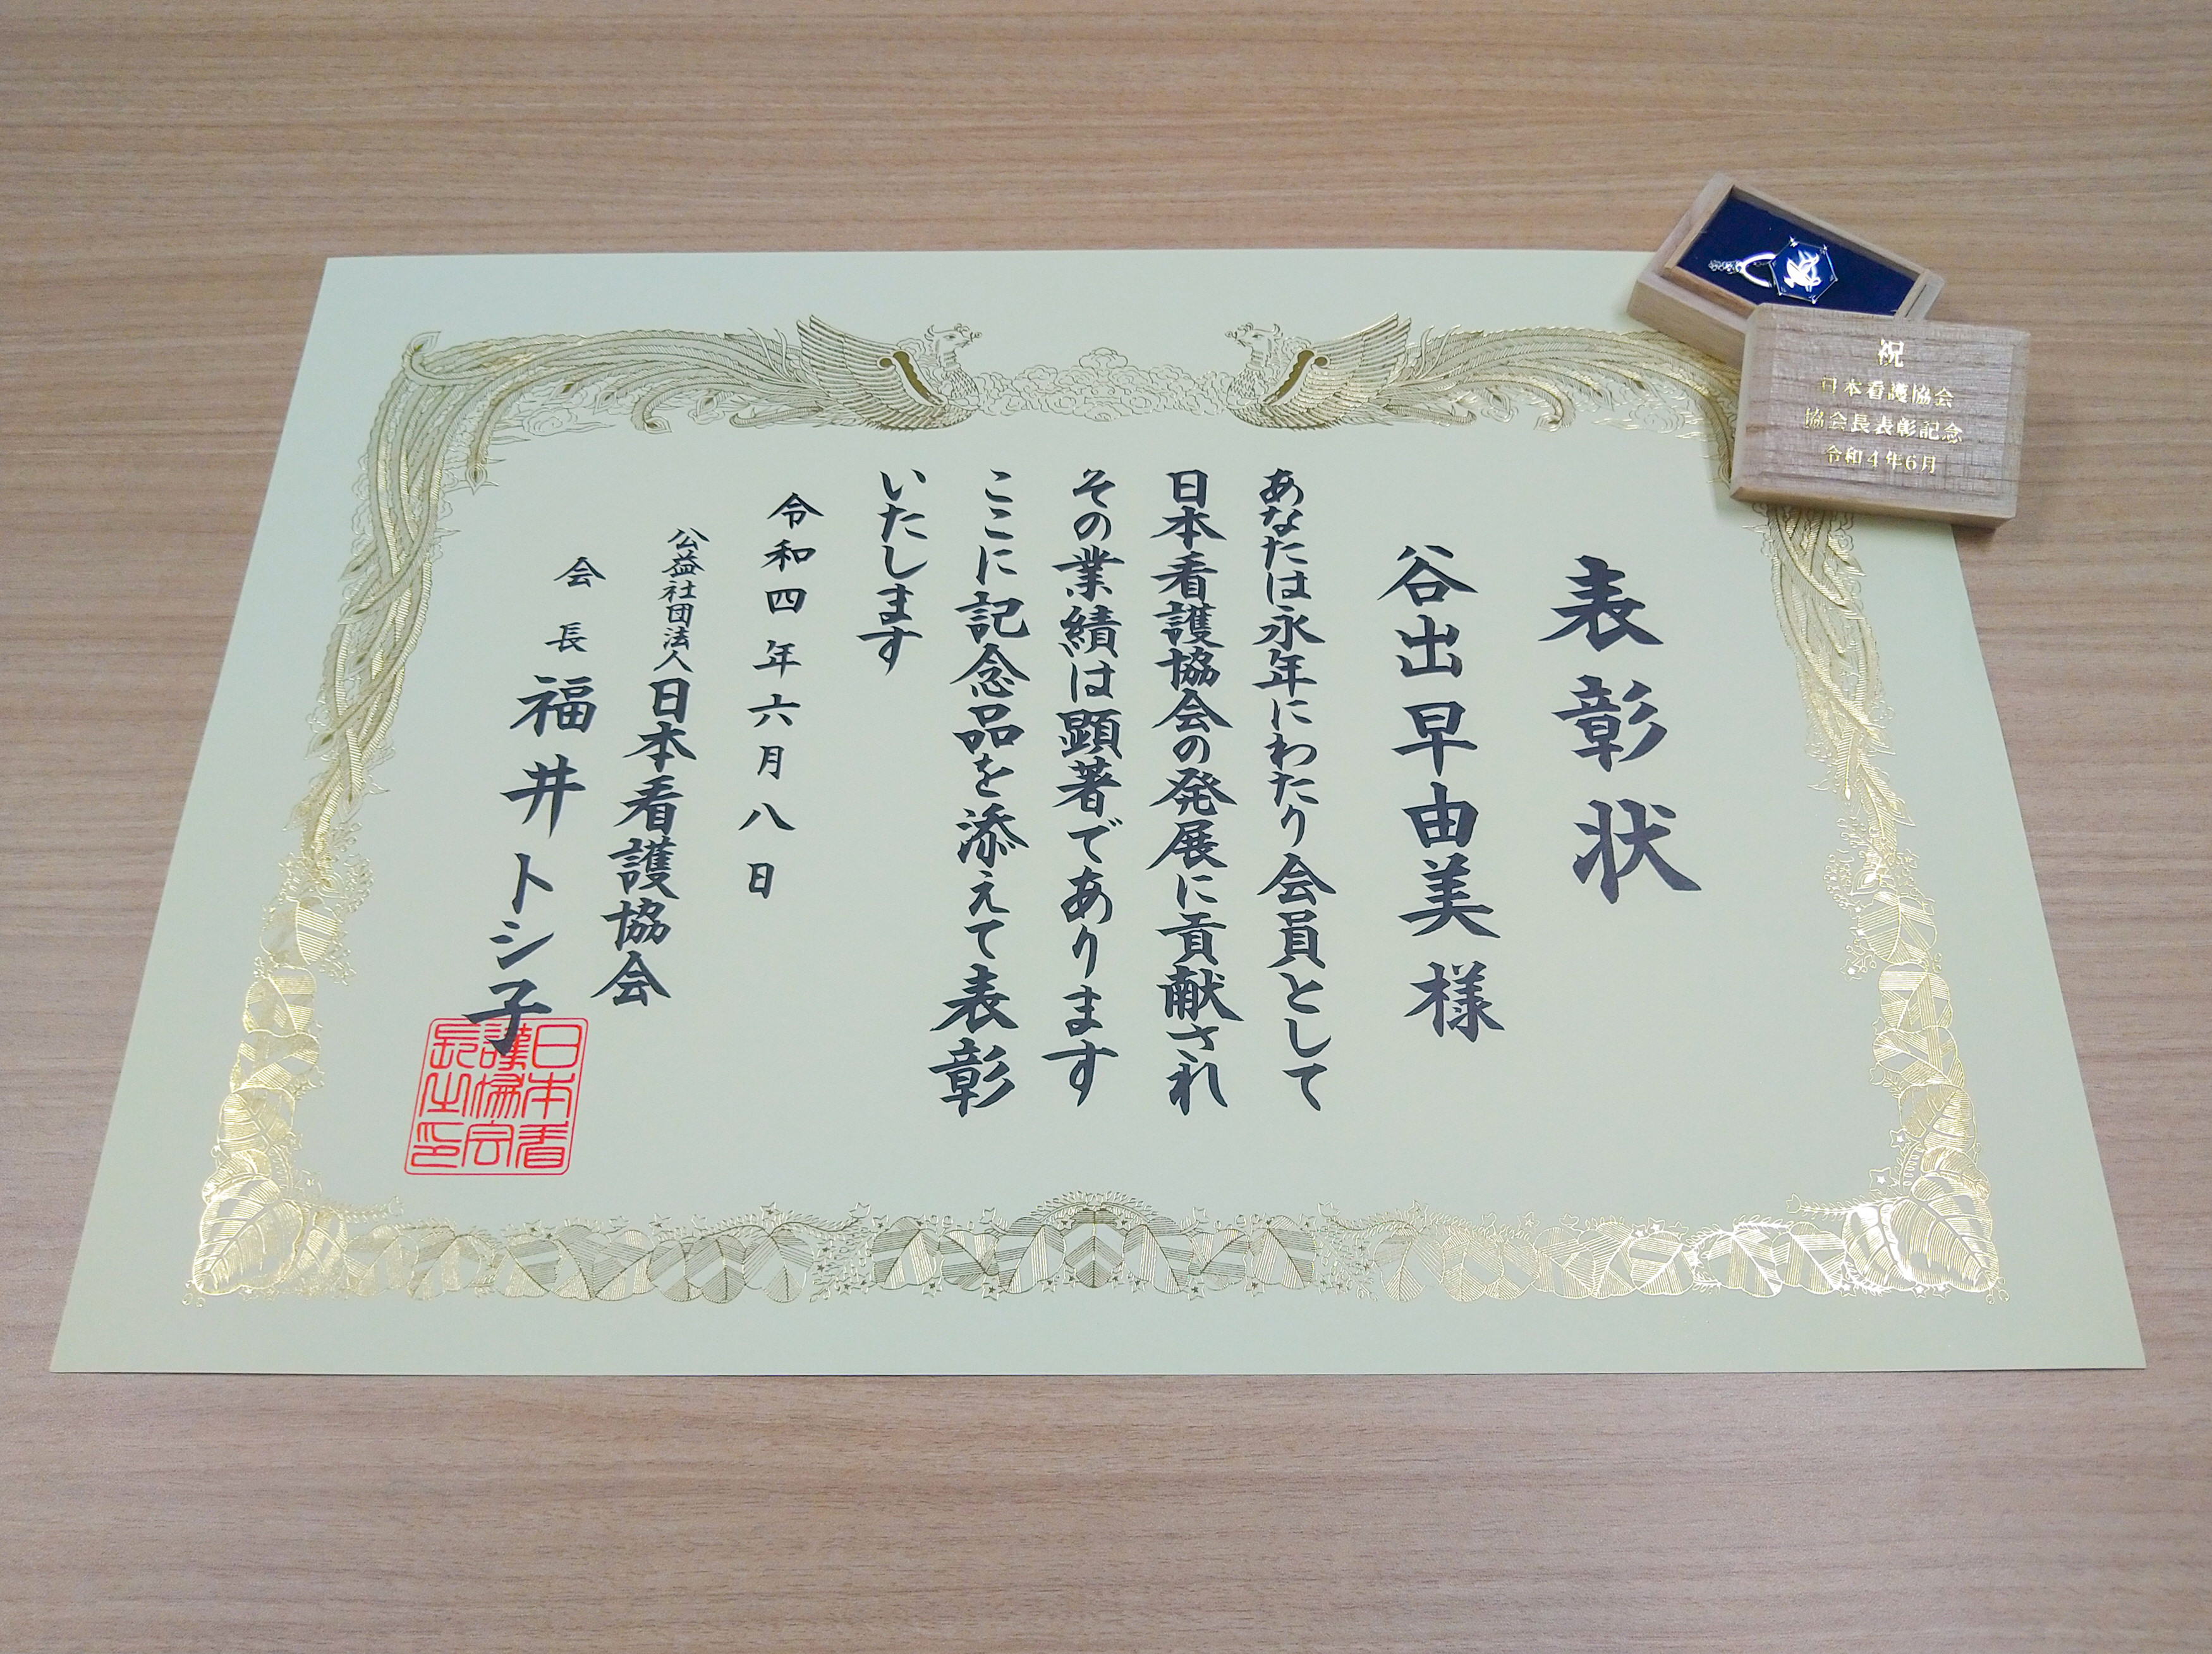 表彰状
谷出早由美様
あなたは永年にわたり会員として
日本看護協会の発展に貢献され
その業績は顕著であります
ここに記念品を添えて表彰
いたします
令和四年六月八日
公益社団法人日本看護協会
会長福井トシ子
日本看
護協会
長之印
祝
日本看護協会
協会長表彰記念
令和4年6月